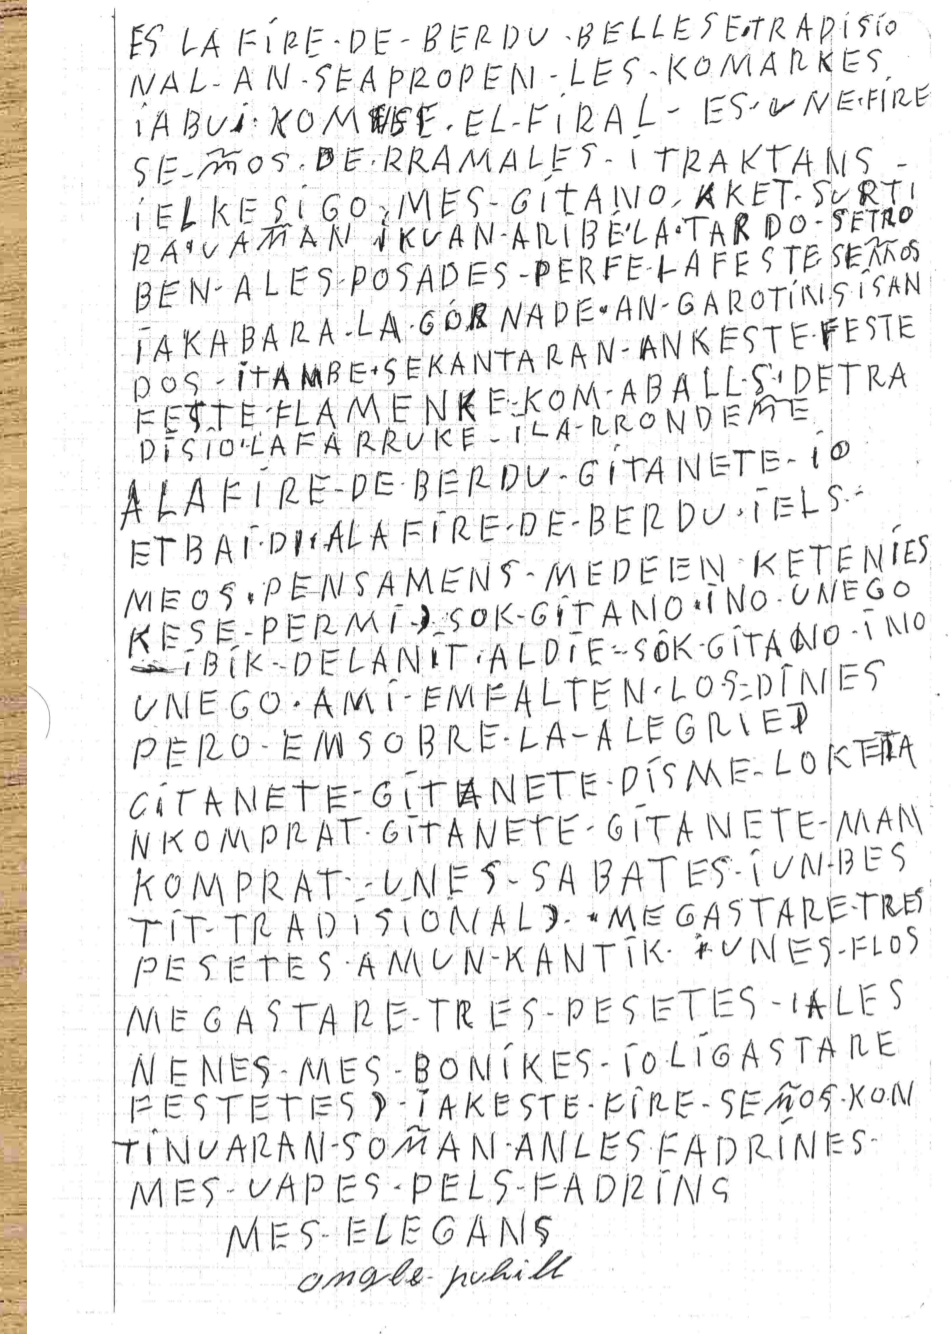 ES LA FÍRE-DE-BERDU-BELLESE.TRADISIO
NAL-AN-SEAPROPEN-LES-KOMARKES
IABUI.KOMESE.EL-FIRAL-ES-UNE-FIRE
SE-ÑOS.DE.RRAMALES-I TRAKTANS-
IELKESIGO,MES-GITANO,AKET-SURTI
RA.UAMAN IKUAN-ARIBE'LA.TARDO-SETRO
BEN-ALES-POSADES-PERFE-LAFESTE SEÑOS
IAKABARA-LA-GORNADE.AN-GAROTINS,ISAN
DOS-ITAMBE.SEKANTARAN-ANKESTE-FESTE
FESTE-FLAMENKE-KOM-ABALLS.DETRA
DISIO'LAFARRUKE-ILA-RRONDEÑE
A LAFIRE-DE-BERDU-GITANETE-IO
ETBAI.DI.ALAFIRE-DE-BERDU.IELS-
MEOS.PENSAMENS-MEDEEN KETENIES
KESE-PERMI)-SOK-GITANO.INO.UNEGO
IBIK-DELANIT.ALDIE-SOK-GITANO-INO
UNEGO.AMI-EMFALTEN.LOS-DINES
PERO-EMSOBRE-LA-ALEGRIE
GITANETE-GITANETE-DISME-LOKETA
NKOMPRAT-GITANETE-GITANETE-MAN
KOMPRAT--UNES-SABATES-IUN-BES
TIT-TRADISIONAL)-.MEGASTARE-TRES
PESETES-AMUN-KANTIK. UNES-FLOS
MEGASTARE-TRES-PESETES-IALES
NENES-MES-BONIKES-IOLIGASTARE
FESTETES)-IAKESTE-FIRE-SEÑOS-KON
TINUARAN-SOÑAN-ANLES FADRINES-
MES-UAPES-PELS-FADRINS
MES-ELEGANS
angle-puhill